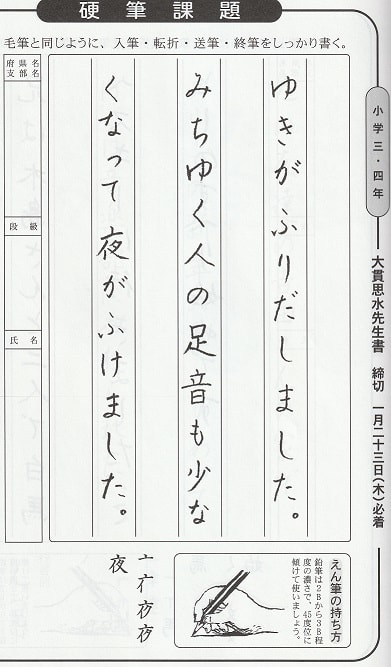 硬筆課題
毛筆と同じように、入筆・転折・送筆・終筆をしっかり書く。
小学三・四年
大貫思水先生書 締切 一月二十三日(木)必着
ゆきがふりだしました。
みちゆく人の足音も少な
くなって夜がふけました。
府県名
支部名
段級
氏名
えん筆の持ち方
鉛筆は2Bから3B程
度の濃さで、45度位に
傾けて使いましょう。
亠 亣 夜 夜
夜